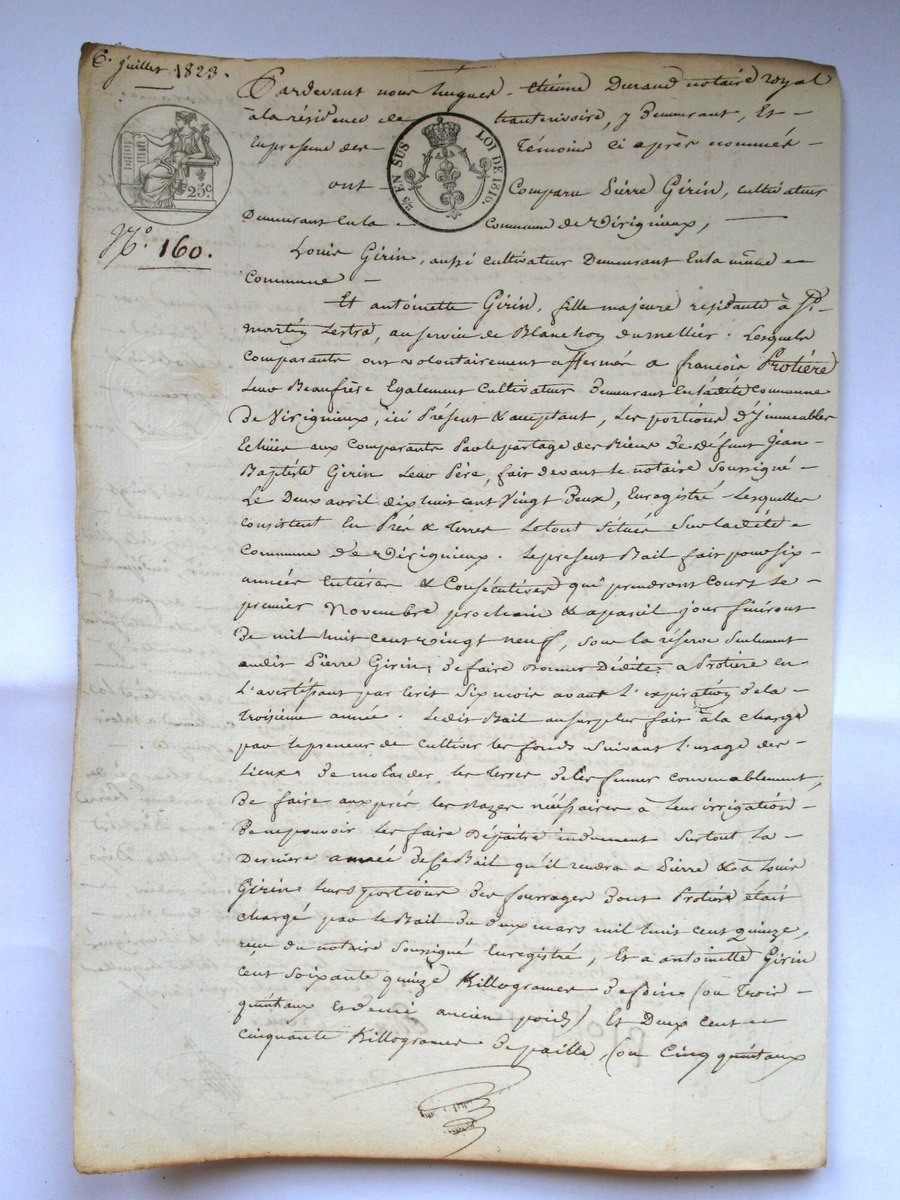 6. Juillet 1823.
25c.
25 EN SUS
LOI DE 1816.
N.° 160.
Pardevant nous hugues - Etienne Durand notaire royal
à la résidence de hauterivoire, y Demeurant, Et -
En presence des Témoins ci après nommés -
ont Comparu Pierre Girin, cultivateur
Demeurant En la - Commune de Virignieux,
Louis Girin, aussi cultivateur Demeurant En la même
Commune -
Et antoinette Girin, fille majeure residante à St
martin Lestra, au service de Blanchon dusmellier. Lesquels
Comparants ont volontairement affermé a francois Protière
Leur Beaufrère Egalement Cultivateur Demeurant En ladite Commune
de Virignieux, ici Présent & acceptant, Les portions D'immeubles
Echues aux Comparants Par le partage des Biens de défunt Jean-
Baptiste Girin Leur Père, fait devant le notaire Soussigné -
Le Deux avril dix huit cent Vingt Deux, Enregistré - Lesquelles
Consistent En Prés & Terres Le tout Située Sur ladite
Commune de Virignieux. Le present Bail fait pour six -
années Entières & Consécutives qui prendront Cours Le -
premier Novembre prochain & a pareil jour finiront
de mil huit cent vingt neuf, sous la réserve Seulement
audit Pierre Girin, de faire Donner Dédite a Protière en
L'avertissant par Ecrit Six mois avant L'expiration de la -
Troisième année. Ledit Bail au surplus fait à la charge
par le preneur de cultiver les fonds Suivant l'usage des -
Lieux, De les fumer convenablement,
De faire aux prés les Razes nécessaires à Leur irrigation -
De ne pouvoir Les faire Dépaitre indument Surtout La -
Derniere année de Ce Bail qu'il rendra a Pierre & a Louis
Girin Leurs portions des fourrages dont Protière était
chargé par le Bail du deux mars mil huit cent Quinze,
reçu du notaire Soussigné Enregistré, Et a antoinette Girin
Cent Soixante quinze Killogrames de foin (ou Trois -
quintaux Et demi ancien poids) Et Deux Cent
Cinquante Killogrames de paille, (ou Cinq quintaux